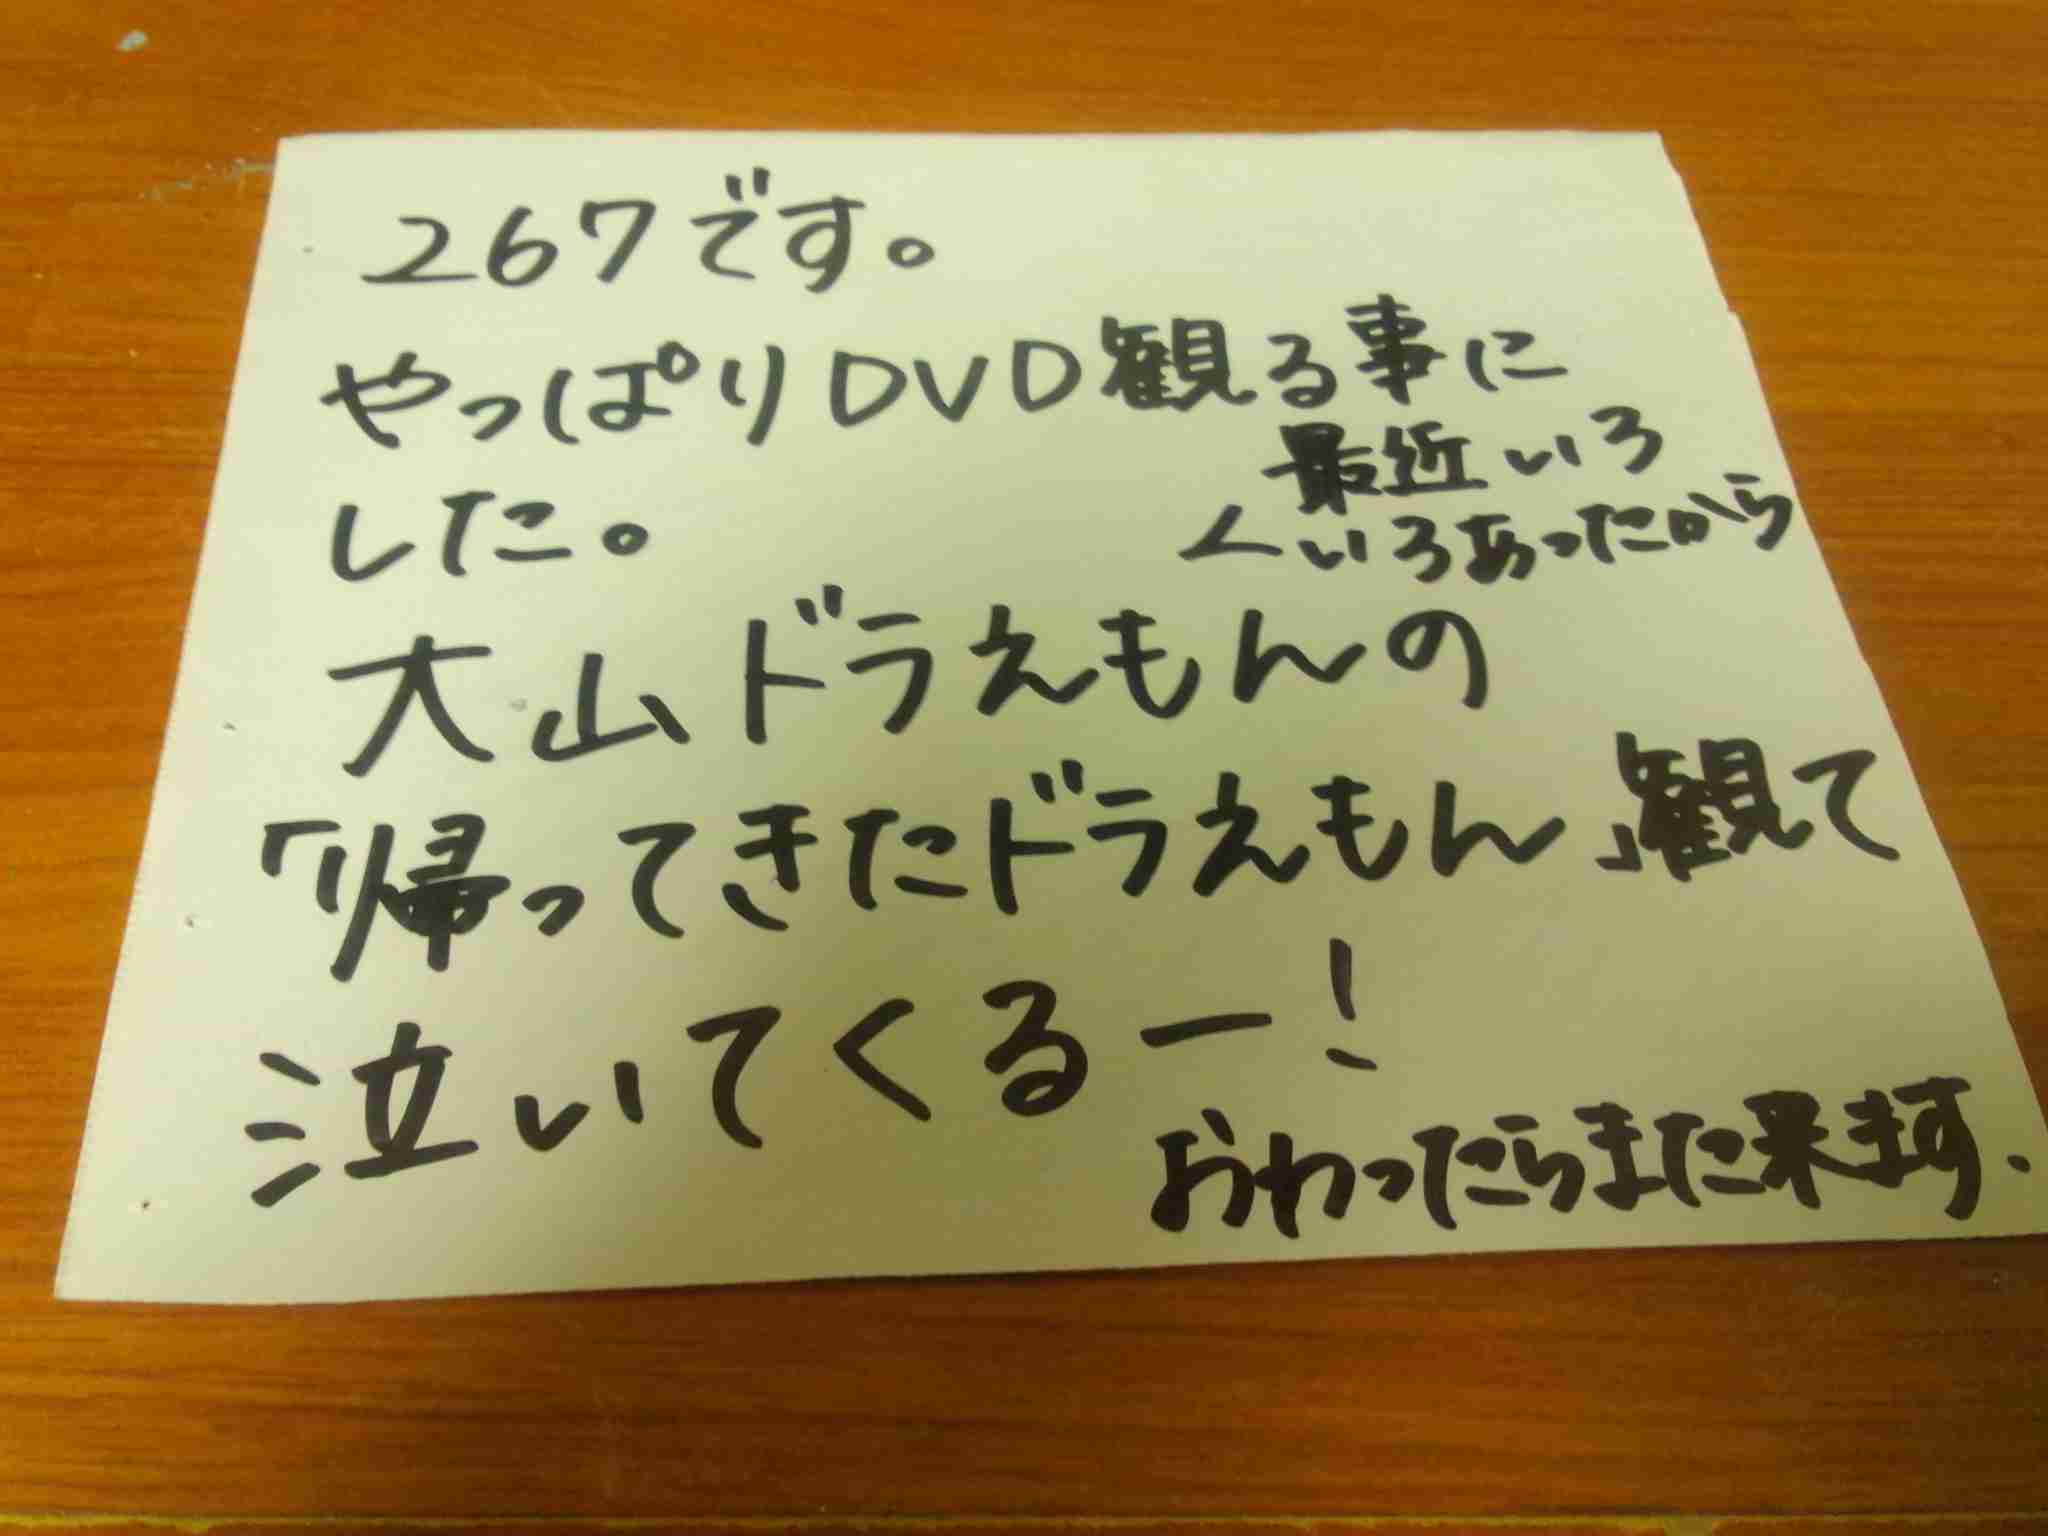 267です。
やっぱりDVD観る事に
した。
最近いろ
いろあったから
大山ドラえもんの
「帰ってきたドラえもん」観て
泣いてくるー!
おわったらまた来ます.